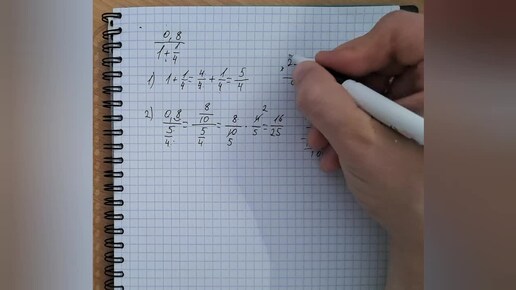 0,8
1+1/4
1) 1+1/4=4/4+1/4=5/4
2) 0,8/5/4=8/10/5/4=8/10·4/5=16/25
5
2